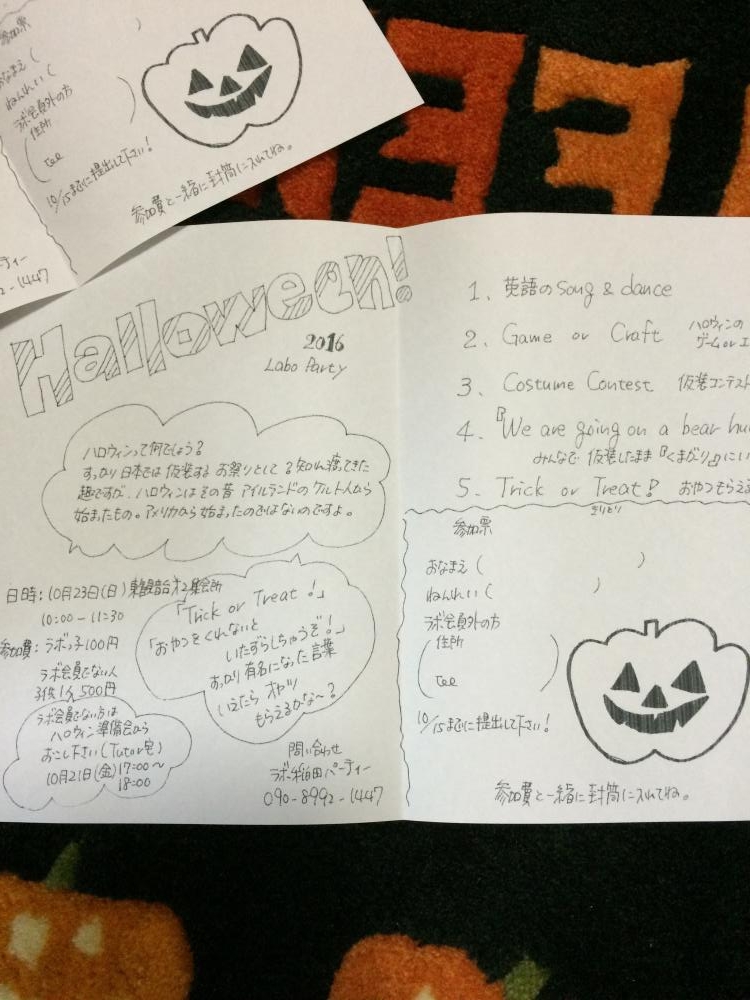 参加票
おなまえ(
ねんれい(
ラボ会員外の方
住所
(
)
Tel
10/15までに提出して下さい!
参加費と一緒に封筒に入れてね。
ーティー
2-1447
Halloween!
2016
Labo Party
ハロウィンって何でしょう?
すっかり日本では仮装する お祭りとして 知れ渡ってきた
ですが、ハロウィンはその昔 アイルランドのケルト人から
始まったもの。アメリカから始まったのではないのですよ。
日時:10月23日(日)
10:00-11:30
参加費:ラボっ子100円
ラボ会員でない人
子供1人 500円
ラボ会員でない方は
ハロウィン準備会から
おこし下さい(Tutor宅)
10月21日(金)17:00〜
18:00
「Trick or Treat!」
「おやつをくれないと
いたずらしちゃうぞ!」
すっかり有名になった言葉
いえたら オヤツ
もらえるかな〜?
問い合わせ
ラボ・稲田パーティー
090-8992-1447
1. 英語のSong & dance
2. Game or Craft ハロウィンの
ゲーム or
3. Costume Contest 仮装コンテスト
4. 『We are going on a bear hu
みんなで 仮装したまま『くまがり』にい
5. Trick or Treat! おやつもらえる
きりとり
参加票
おなまえ( )
ねんれい( )
ラボ会員外の方
住所
( )
Tel
10/15までに提出して下さい!
参加費と一緒に封筒に入れてね。